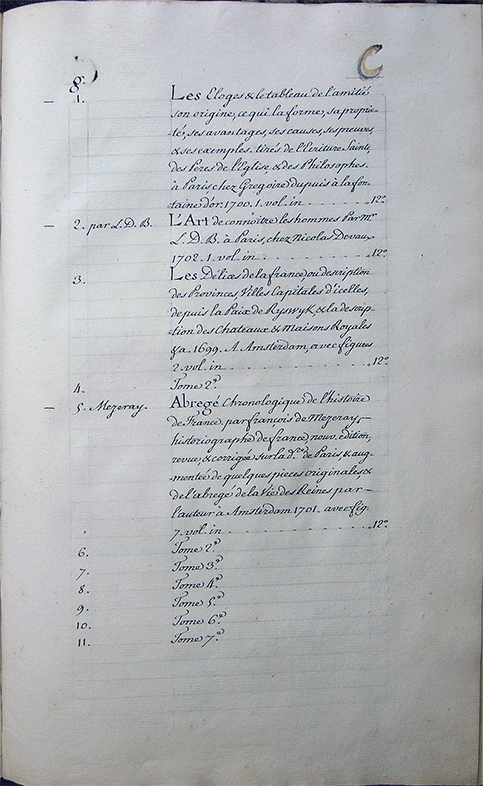 C
8.
1. Les Eloges & le tableau de l'amitié
son origine, ce qui la forme, sa proprie=
té, ses avantages, ses causes, ses preuves,
& ses exemples. tirés de l'Ecriture Sainte,
des Peres de l'Eglise & des Philosophes.
à Paris chez Gregoire dupuis à la fon=
taine d'or. 1700. 1. vol. in 12º
2. par L. D. B. L'Art de connoître les hommes Par Mr.
L. D. B. à Paris, chez Nicolas Devaux
1702. 1. vol in 12º
3. Les Délices de la france, ou description
des Provinces, Villes Capitales d'icelles,
depuis la Paix de Ryswyk, & la descrip=
=tion des Chateaux & Maisons Royales
&a. 1699. A Amsterdam, avec figures
2. vol. in 12º
4. Tome 2º
5. Mezeray. Abregé Chronologique de l'histoire
de France par françois de Mezeray,
historiographe de france, nouv. edition,
revue, & corrigée sur la d.re de Paris, & aug=
mentée de quelques pieces originales, &
de l'abregé de la Vie des Reines par
l'auteur à Amsterdam 1701. avec fig.
7. vol. in 12º
6. Tome 2º
7. Tome 3º
8. Tome 4º
9. Tome 5º
10. Tome 6º
11. Tome 7º